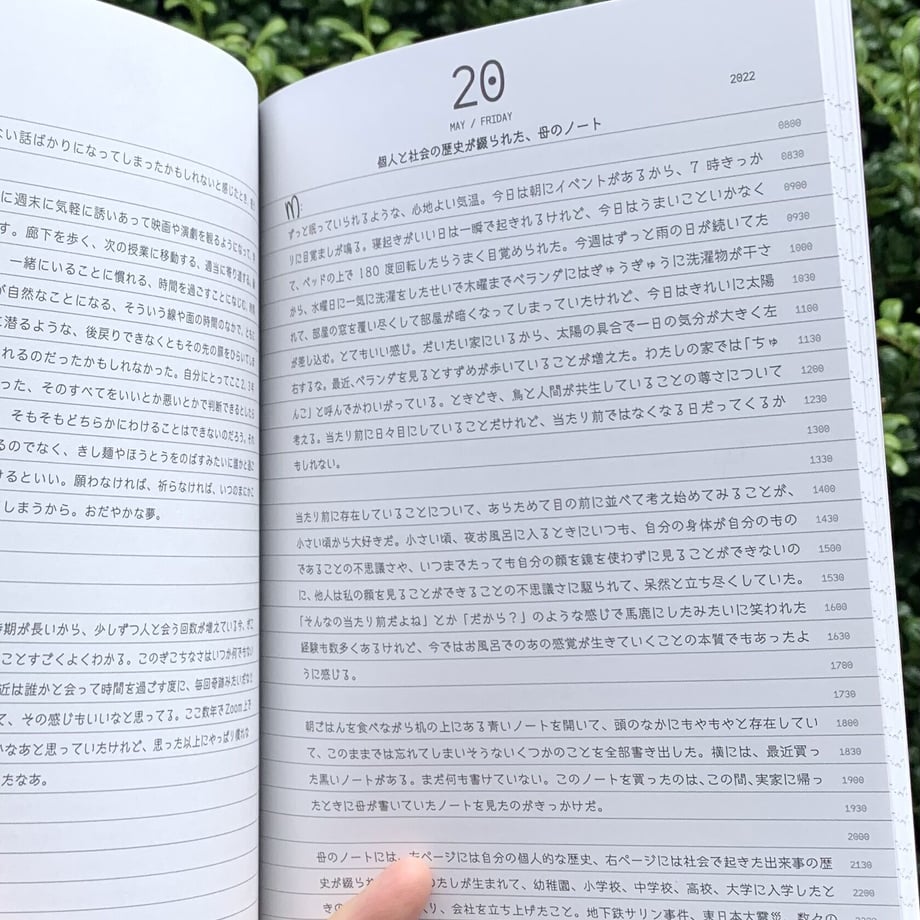 ない話ばかりになってしまったかもしれないと感じたとき、
に週末に気軽に誘いあって映画や演劇を観るようになって、
す。廊下を歩く、次の授業に移動する、適当に寄り道する、
一緒にいることに慣れる、時間を過ごすことになじむ、
が自然なことになる、そういう線や面の時間のなかで、
に潜るような、後戻りできなくともその先の扉をひらいて
れるのだったかもしれなかった。自分にとってここ2、3年
った、そのすべてをいいとか悪いとかで判断できるとした
そもそもどちらかにわけることはできないのだろう。それ
るのでなく、きし麺やほうとうをのばすみたいに誰かと
けるといい。願わなければ、祈らなければ、いつのまにか
しまうから。おだやかな夢。
時期が長いから、少しずつ人と会う回数が増えている今、
ことすごくよくわかる。このぎこちなさはいつか何でもない
近は誰かと会って時間を過ごす度に、毎回奇跡みたいだな
て、その感じもいいなと思ってる。ここ数年でZoom上で
かなあと思っていたけれど、思った以上にやっぱり慣れな
たなあ。
20
MAY / FRIDAY
2022
個人と社会の歴史が綴られた、母のノート
m
0800
ずっと眠っていられるような、心地よい気温。今日は朝にイベントがあるから、7 時きっか 0830
りに目覚ましが鳴る。寝起きがいい日は一瞬で起きれるけれど、今日はうまいこといかなく 0900
て、ベッドの上で 180 度回転したらうまく目覚められた。今週はずっと雨の日が続いてた 0930
から、水曜日に一気に洗濯をしたせいで木曜までベランダにはぎゅうぎゅうに洗濯物が干さ 1000
れて、部屋の窓を覆い尽くして部屋が暗くなってしまっていたけれど、今日はきれいに太陽 1030
が差し込む。とてもいい感じ。だいたい家にいるから、太陽の具合で一日の気分が大きく左 1100
右するな。最近、ベランダを見るとすずめが歩いていることが増えた。わたしの家では「ちゅ 1130
んこ」と呼んでかわいがっている。ときどき、鳥と人間が共生していることの尊さについて 1200
考える。当たり前に日々目にしていることだけれど、当たり前ではなくなる日だってくるか 1230
もしれない。 1300
1330
当たり前に存在していることについて、あらためて目の前に並べて考え始めてみることが、 1400
小さい頃から大好きだ。小さい頃、夜お風呂に入るときにいつも、自分の身体が自分のもの 1430
であることの不思議さや、いつまでたっても自分の顔を鏡を使わずに見ることができないの 1500
に、他人は私の顔を見ることができることの不思議さに駆られて、呆然と立ち尽くしていた。 1530
「そんなの当たり前だよね」とか「だから？」のような感じで馬鹿にしたみたいに笑われた 1600
経験も数多くあるけれど、今ではお風呂でのあの感覚が生きていくことの本質でもあったよ 1630
うに感じる。 1700
1730
朝ごはんを食べながら机の上にある青いノートを開いて、頭のなかにもやもやと存在してい 1800
て、このままでは忘れてしまいそうないくつかのことを全部書き出した。横には、最近買っ 1830
た黒いノートがある。まだ何も書けていない。このノートを買ったのは、この間、実家に帰っ 1900
たときに母が書いていたノートを見たのがきっかけだ。 1930
2000
母のノートには、左ページには自分の個人的な歴史、右ページには社会で起きた出来事の歴 2130
史が綴られ たしが生まれて、幼稚園、小学校、中学校、高校、大学に入学したと 2200
きの 入り、会社を立ち上げたこと。地下鉄サリン事件、東日本大震災、数々の